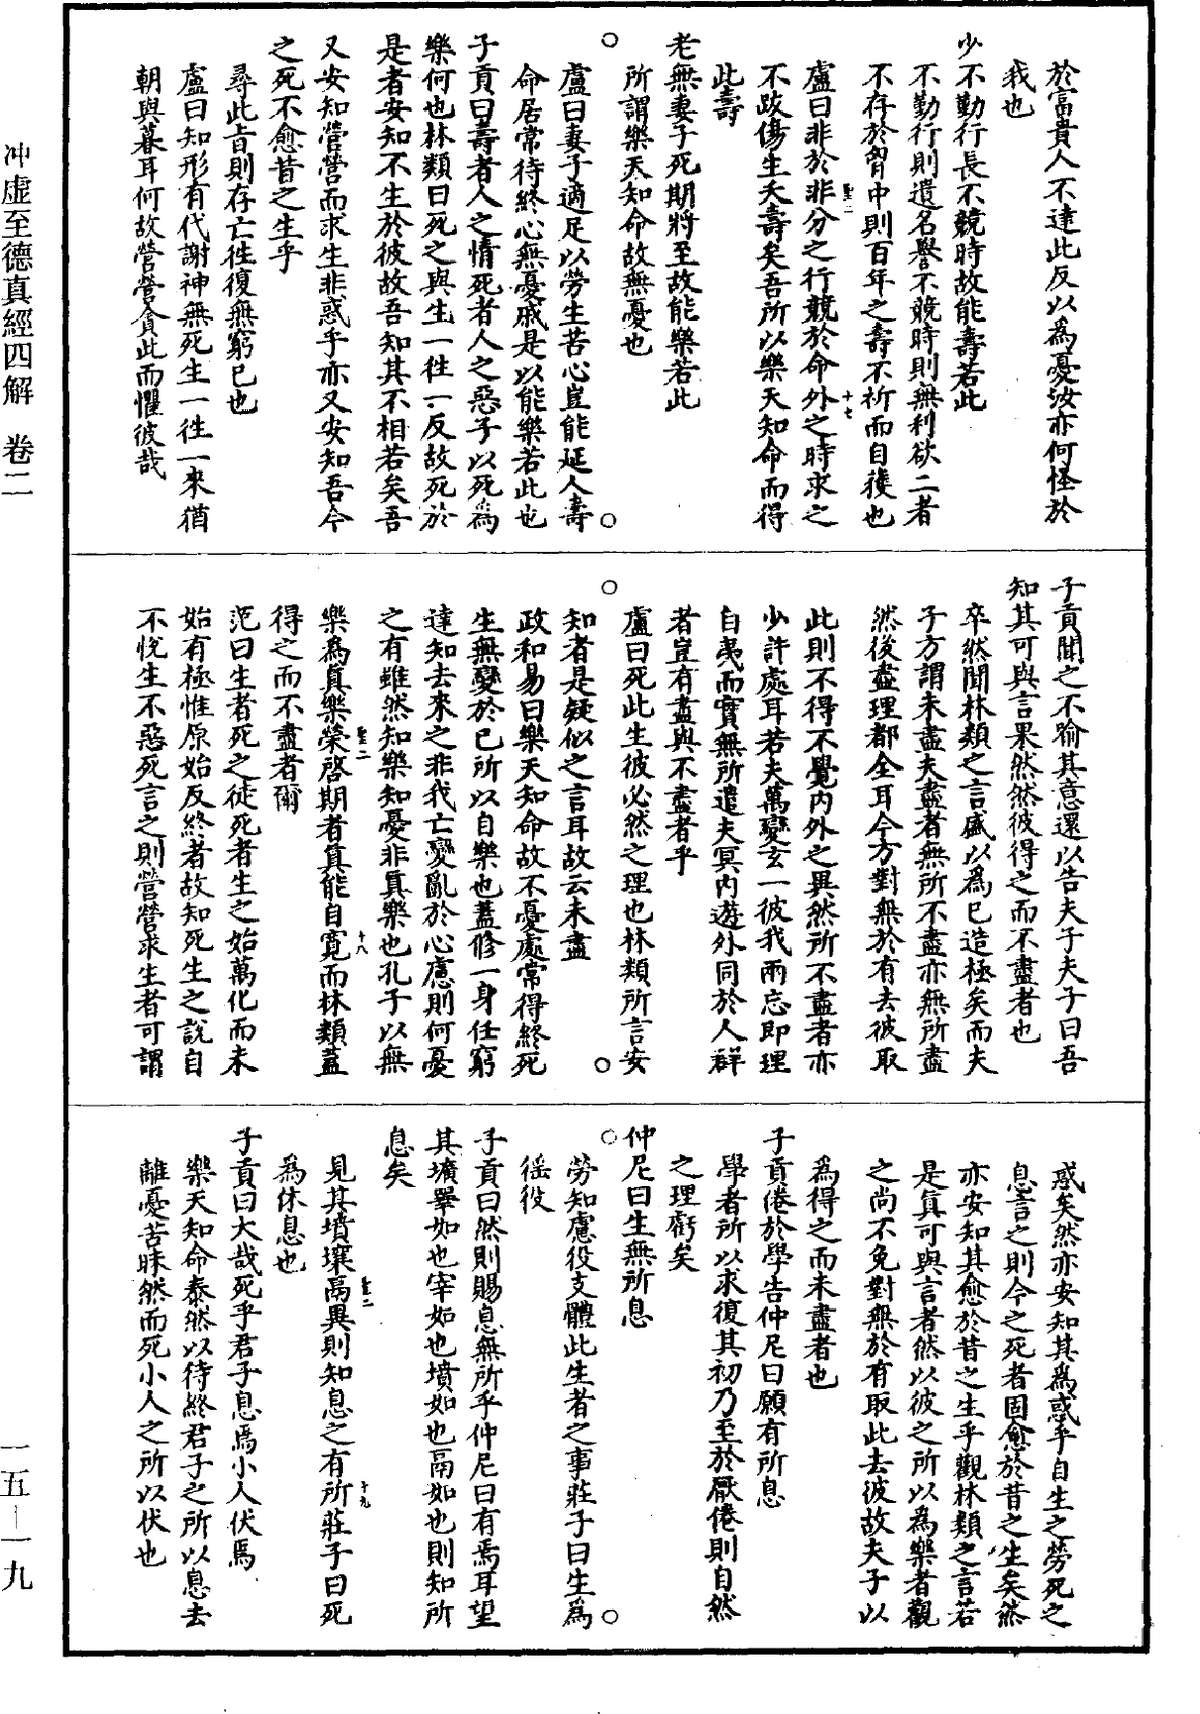 於富貴人不達此反以爲憂汝亦何怪於
我也
少不勤行長不競時故能壽若此
不勤行則遺名譽不競時則無利欲二者
不存於胷中則百年之壽不祈而自獲也
盧曰非於非分之行競於命外之時求之
不跂傷生夭壽矣吾所以樂天知命而得
此壽
老無妻子死期將至故能樂若此
所謂樂天知命故無憂也
盧曰妻子適足以勞生苦心豈能延人壽
命居常待終心無憂戚是以能樂若此也
子貢曰壽者人之情死者人之惡子以死爲
樂何也林類曰死之與生一徃一反故死於
是者安知不生於彼故吾知其不相若矣吾
又安知營營而求生非惑乎亦又安知吾今
之死不愈昔之生乎
尋此旨則存亡徃復無窮已也
盧曰知形有代謝神無死生一徃一來猶
朝與暮耳何故營營貪此而懼彼哉
子貢聞之不喻其意還以告夫子夫子曰吾
知其可與言果然然彼得之而不盡者也
卒然聞林類之言盛以爲已造極矣而夫
子方謂未盡夫盡者無所不盡亦無所盡
然後盡理都全耳今方對無於有去彼取
此則不得不覺內外之異然所不盡者亦
少許處耳若夫萬變玄一彼我兩忘即理
自夷而實無所遣夫冥內遊外同於人群
者豈有盡與不盡者乎
盧曰死此生彼必然之理也林類所言安
知者是疑似之言耳故云未盡
政和易曰樂天知命故不憂處常得終死
生無變於已所以自樂也蓋修一身任窮
達知去來之非我亡變亂於心慮則何憂
之有雖然知樂知憂非眞樂也孔子以無
樂爲眞樂榮啓期者眞能自寬而林類蓋
得之而不盡者爾
范曰生者死之徒死者生之始萬化而未
始有極惟原始反終者故知死生之說自
不悅生不惡死言之則營營求生者可謂
惑矣然亦安知其爲惑乎自生之勞死之
息言之則今之死者固愈於昔之生矣然
亦安知其愈於昔之生乎觀林類之言若
是眞可與言者然以彼之所以爲樂者觀
之尚不免對無於有取此去彼故夫子以
爲得之而未盡者也
子貢倦於學告仲尼曰願有所息
學者所以求復其初乃至於厭倦則自然
之理虧矣
仲尼曰生無所息
勞知慮役支體此生者之事莊子曰生爲
徭役
子貢曰然則賜息無所乎仲尼曰有焉耳望
其壙睪如也宰如也墳如也鬲如也則知所
息矣
見其墳壤鬲異則知息之有所莊子曰死
爲休息也
子貢曰大哉死乎君子息焉小人伏焉
樂天知命泰然以待終君子之所以息去
離憂苦昧然而死小人之所以伏也
聖二
十七
聖二
十八
聖二
十九
冲虛至德真經四解 卷二
一五—一九